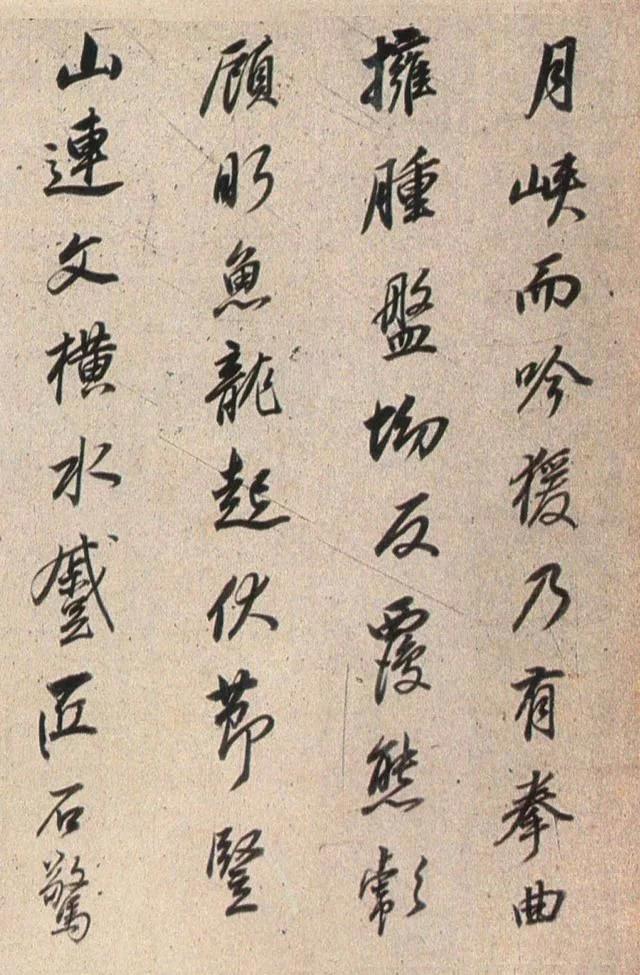 月峽而吟猨乃有拳曲
擁腫盤坳反覆熊彪
顧盼魚龍起伏節豎
山連文橫水蹙匠石驚